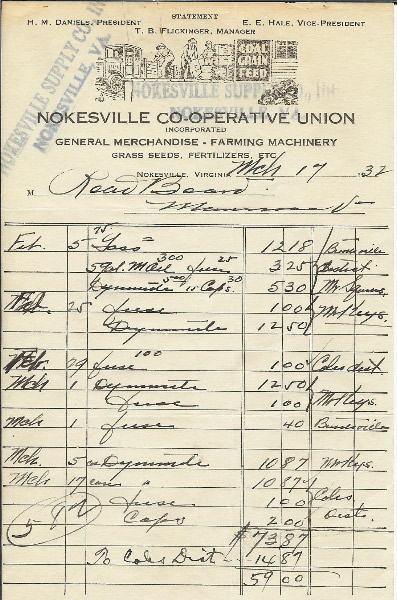 STATEMENT
H. M. DANIELS, PRESIDENT E. E. HALE, VICE-PRESIDENT
T. B. FLICKINGER, MANAGER
NOKESVILLE SUPPLY CO., INC.
NOKESVILLE, VA.
COAL GRAIN FEED
NOKESVILLE SUPPLY CO., Inc.
NOKESVILLE, VA.
NOKESVILLE CO-OPERATIVE UNION
INCORPORATED
GENERAL MERCHANDISE - FARMING MACHINERY
GRASS SEEDS, FERTILIZERS, ETC.
NOKESVILLE, VIRGINIA Mch 17 32
M Road Board
Manassas Va
Feb. 5 75 Gas 12 18
5 gal. M Oil 300 fuse 25 3 25
Dynamite 500 15 Caps. 30 5 30
Feb. 25 fuse 1 00 Mr Keys.
Dynamite 12 50
Feb. 29 fuse 100 1 00 Coles dist.
Mch 1 Dynamite 12 50
fuse 1 00 Mr Keys
Mch 1 fuse 40
Mch. 5 Dynamite 10 87 Mr Keys.
Mch 17 " 10 87
fuse 1 00 Coles
Caps 2 00 Dist.
$ 73 87
To Coles Dist 14 87
59 00